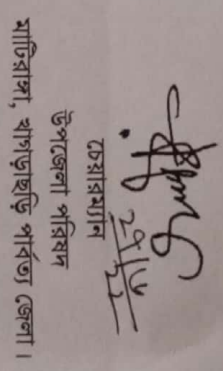 29/11/22
চেয়ারম্যান
উপজেলা পরিষদ
মাটিরাঙ্গা, খাগড়াছড়ি পার্বত্য জেলা।